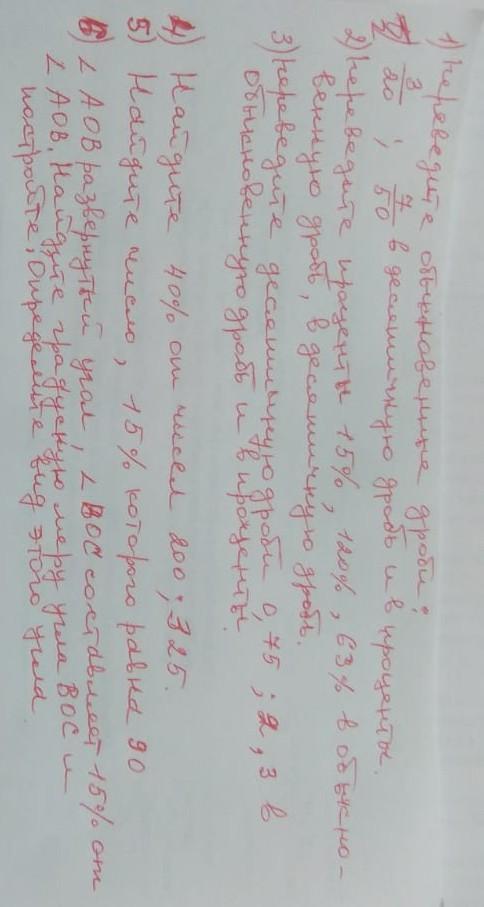 1) переведите обыкновенные дроби:
3/20 ; 7/50 в десятичную дробь и в проценты.
2) переведите проценты 15%, 120%, 63% в обыкно-
венную дробь, в десятичную дробь.
3) переведите десятичную дроби 0,75 ; 2,3 в
обыкновенную дробь и в проценты.
4) Найдите 40% от чисел 200; 325.
5) Найдите число, 15% которого равна 90
6) ∠ AOB развернутый угол ∠ BOC составляет 15% от
∠ AOB. Найдите градусную меру угла BOC и
постройте, Определите вид этого угла